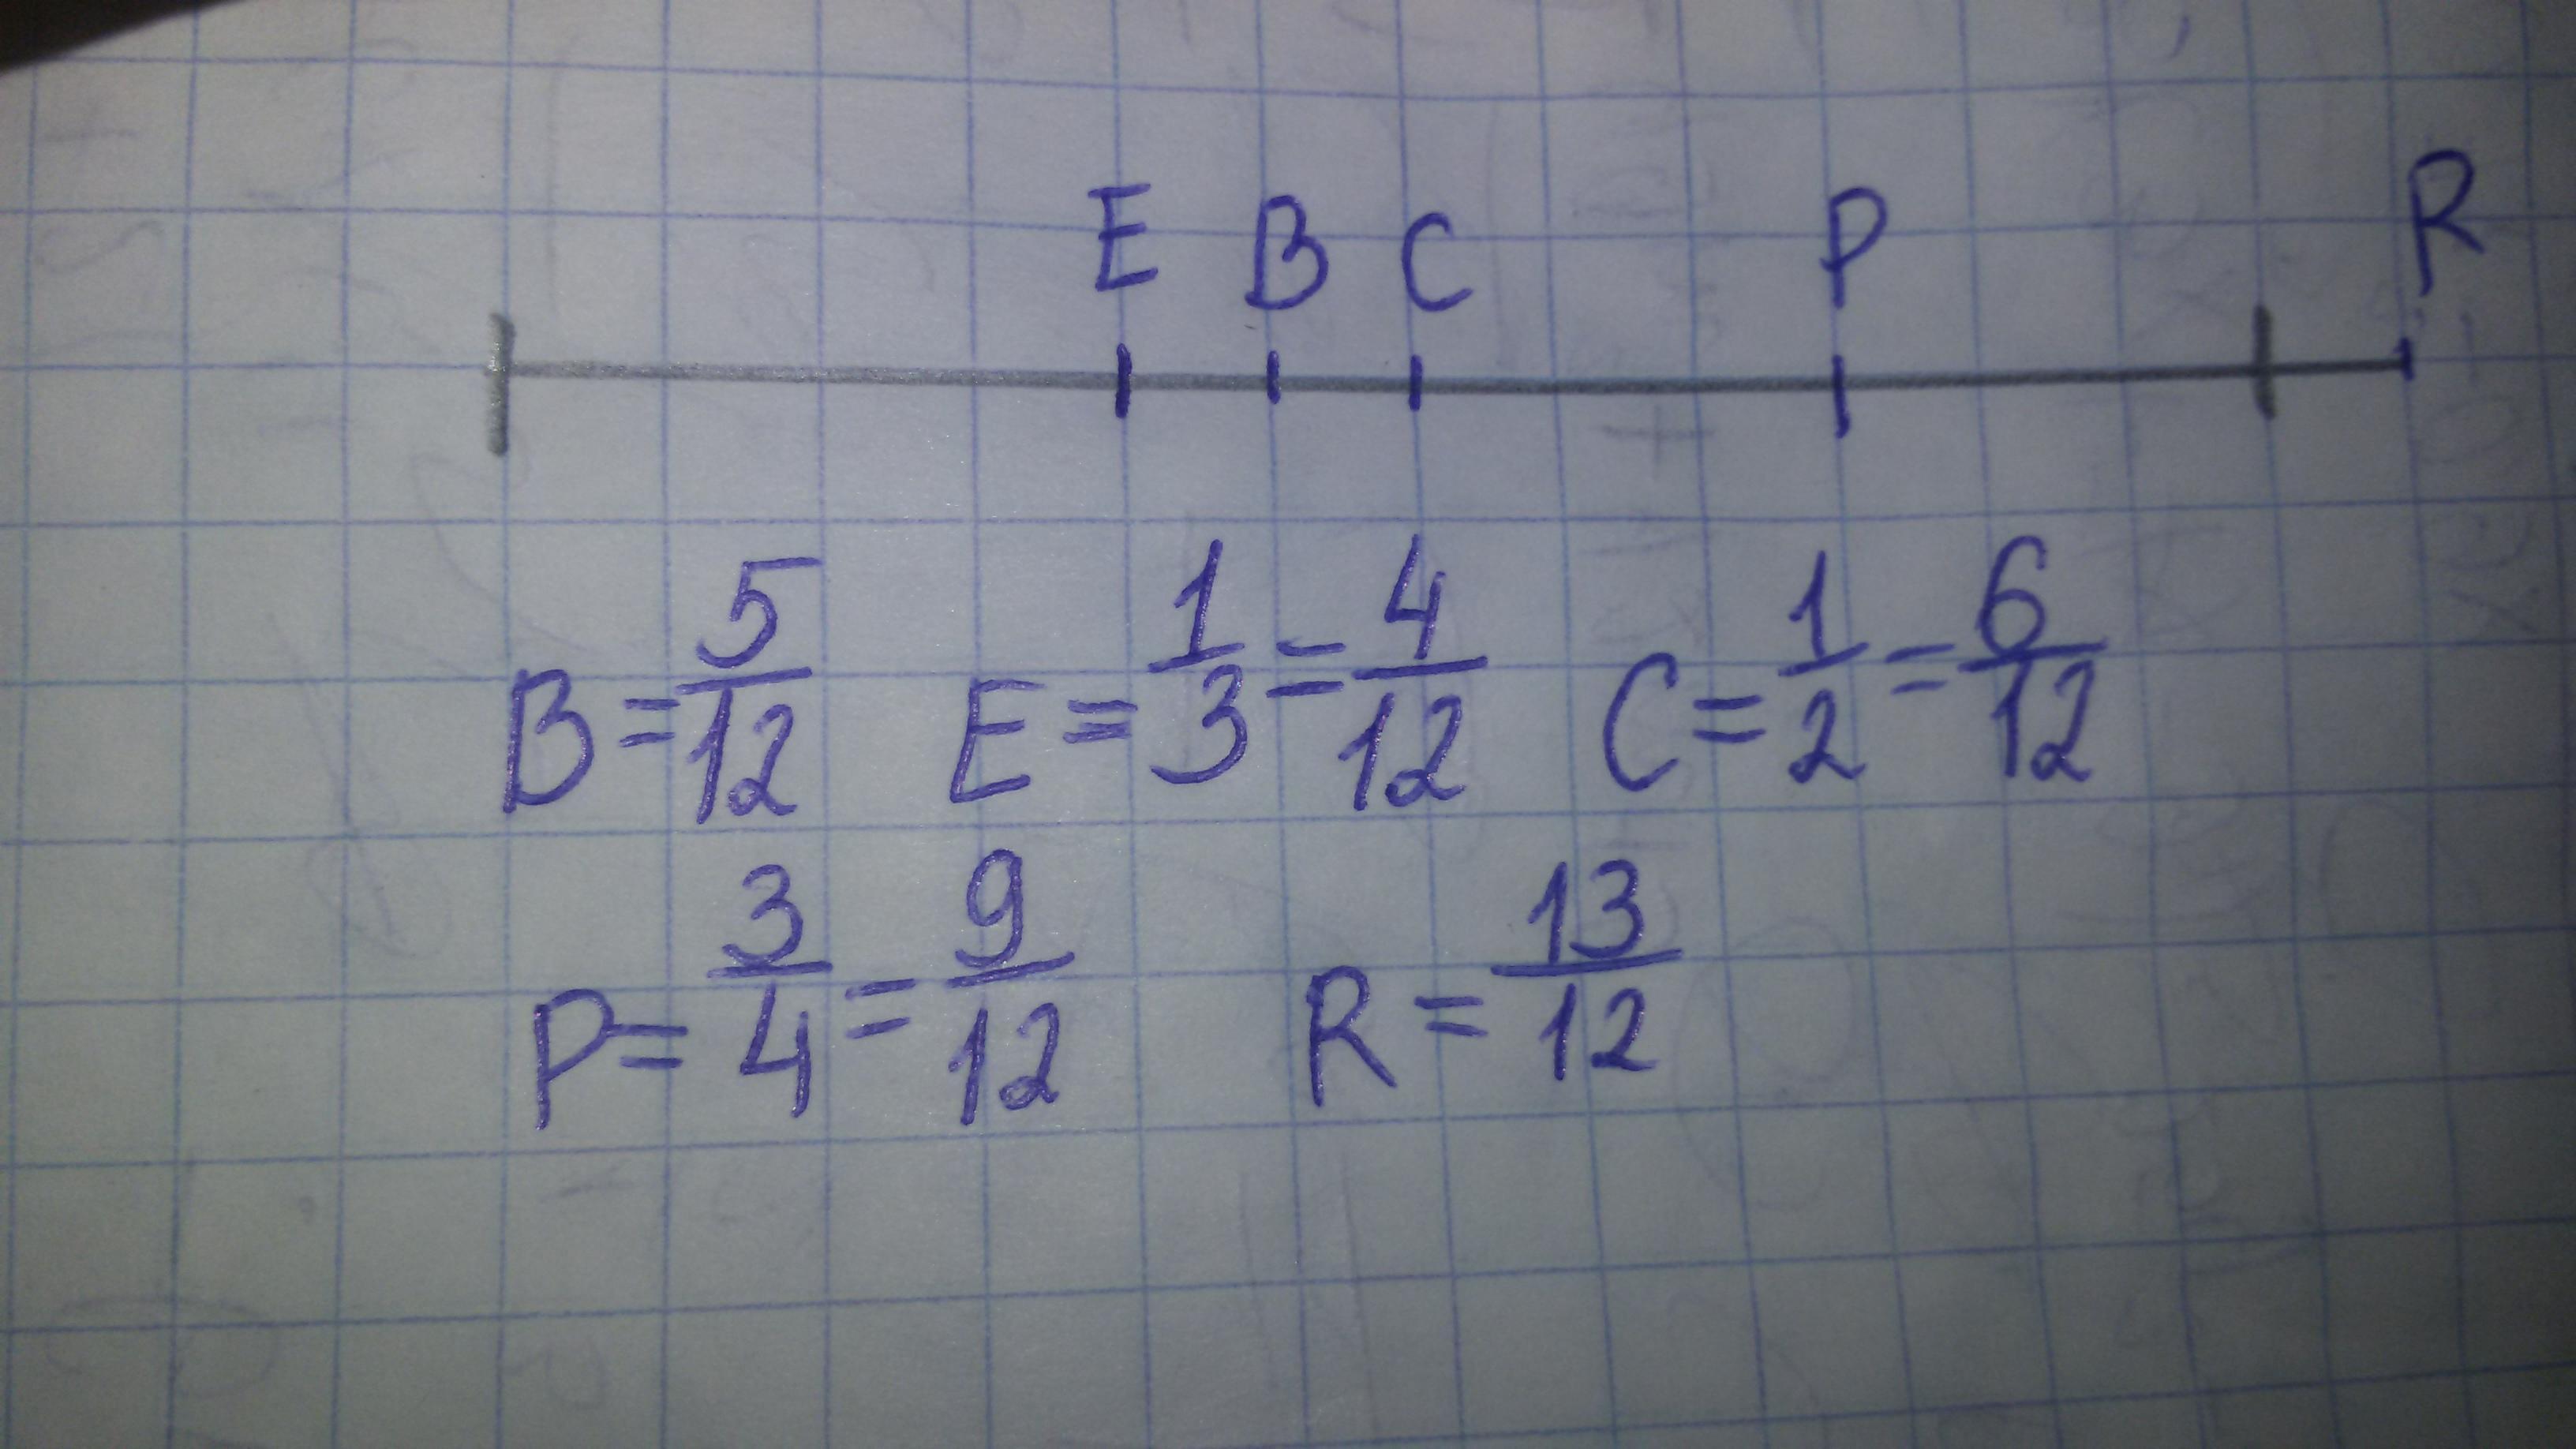 E B C P R
B = 5/12 E = 1/3 = 4/12 C = 1/2 = 6/12
P = 3/4 = 9/12 R = 13/12